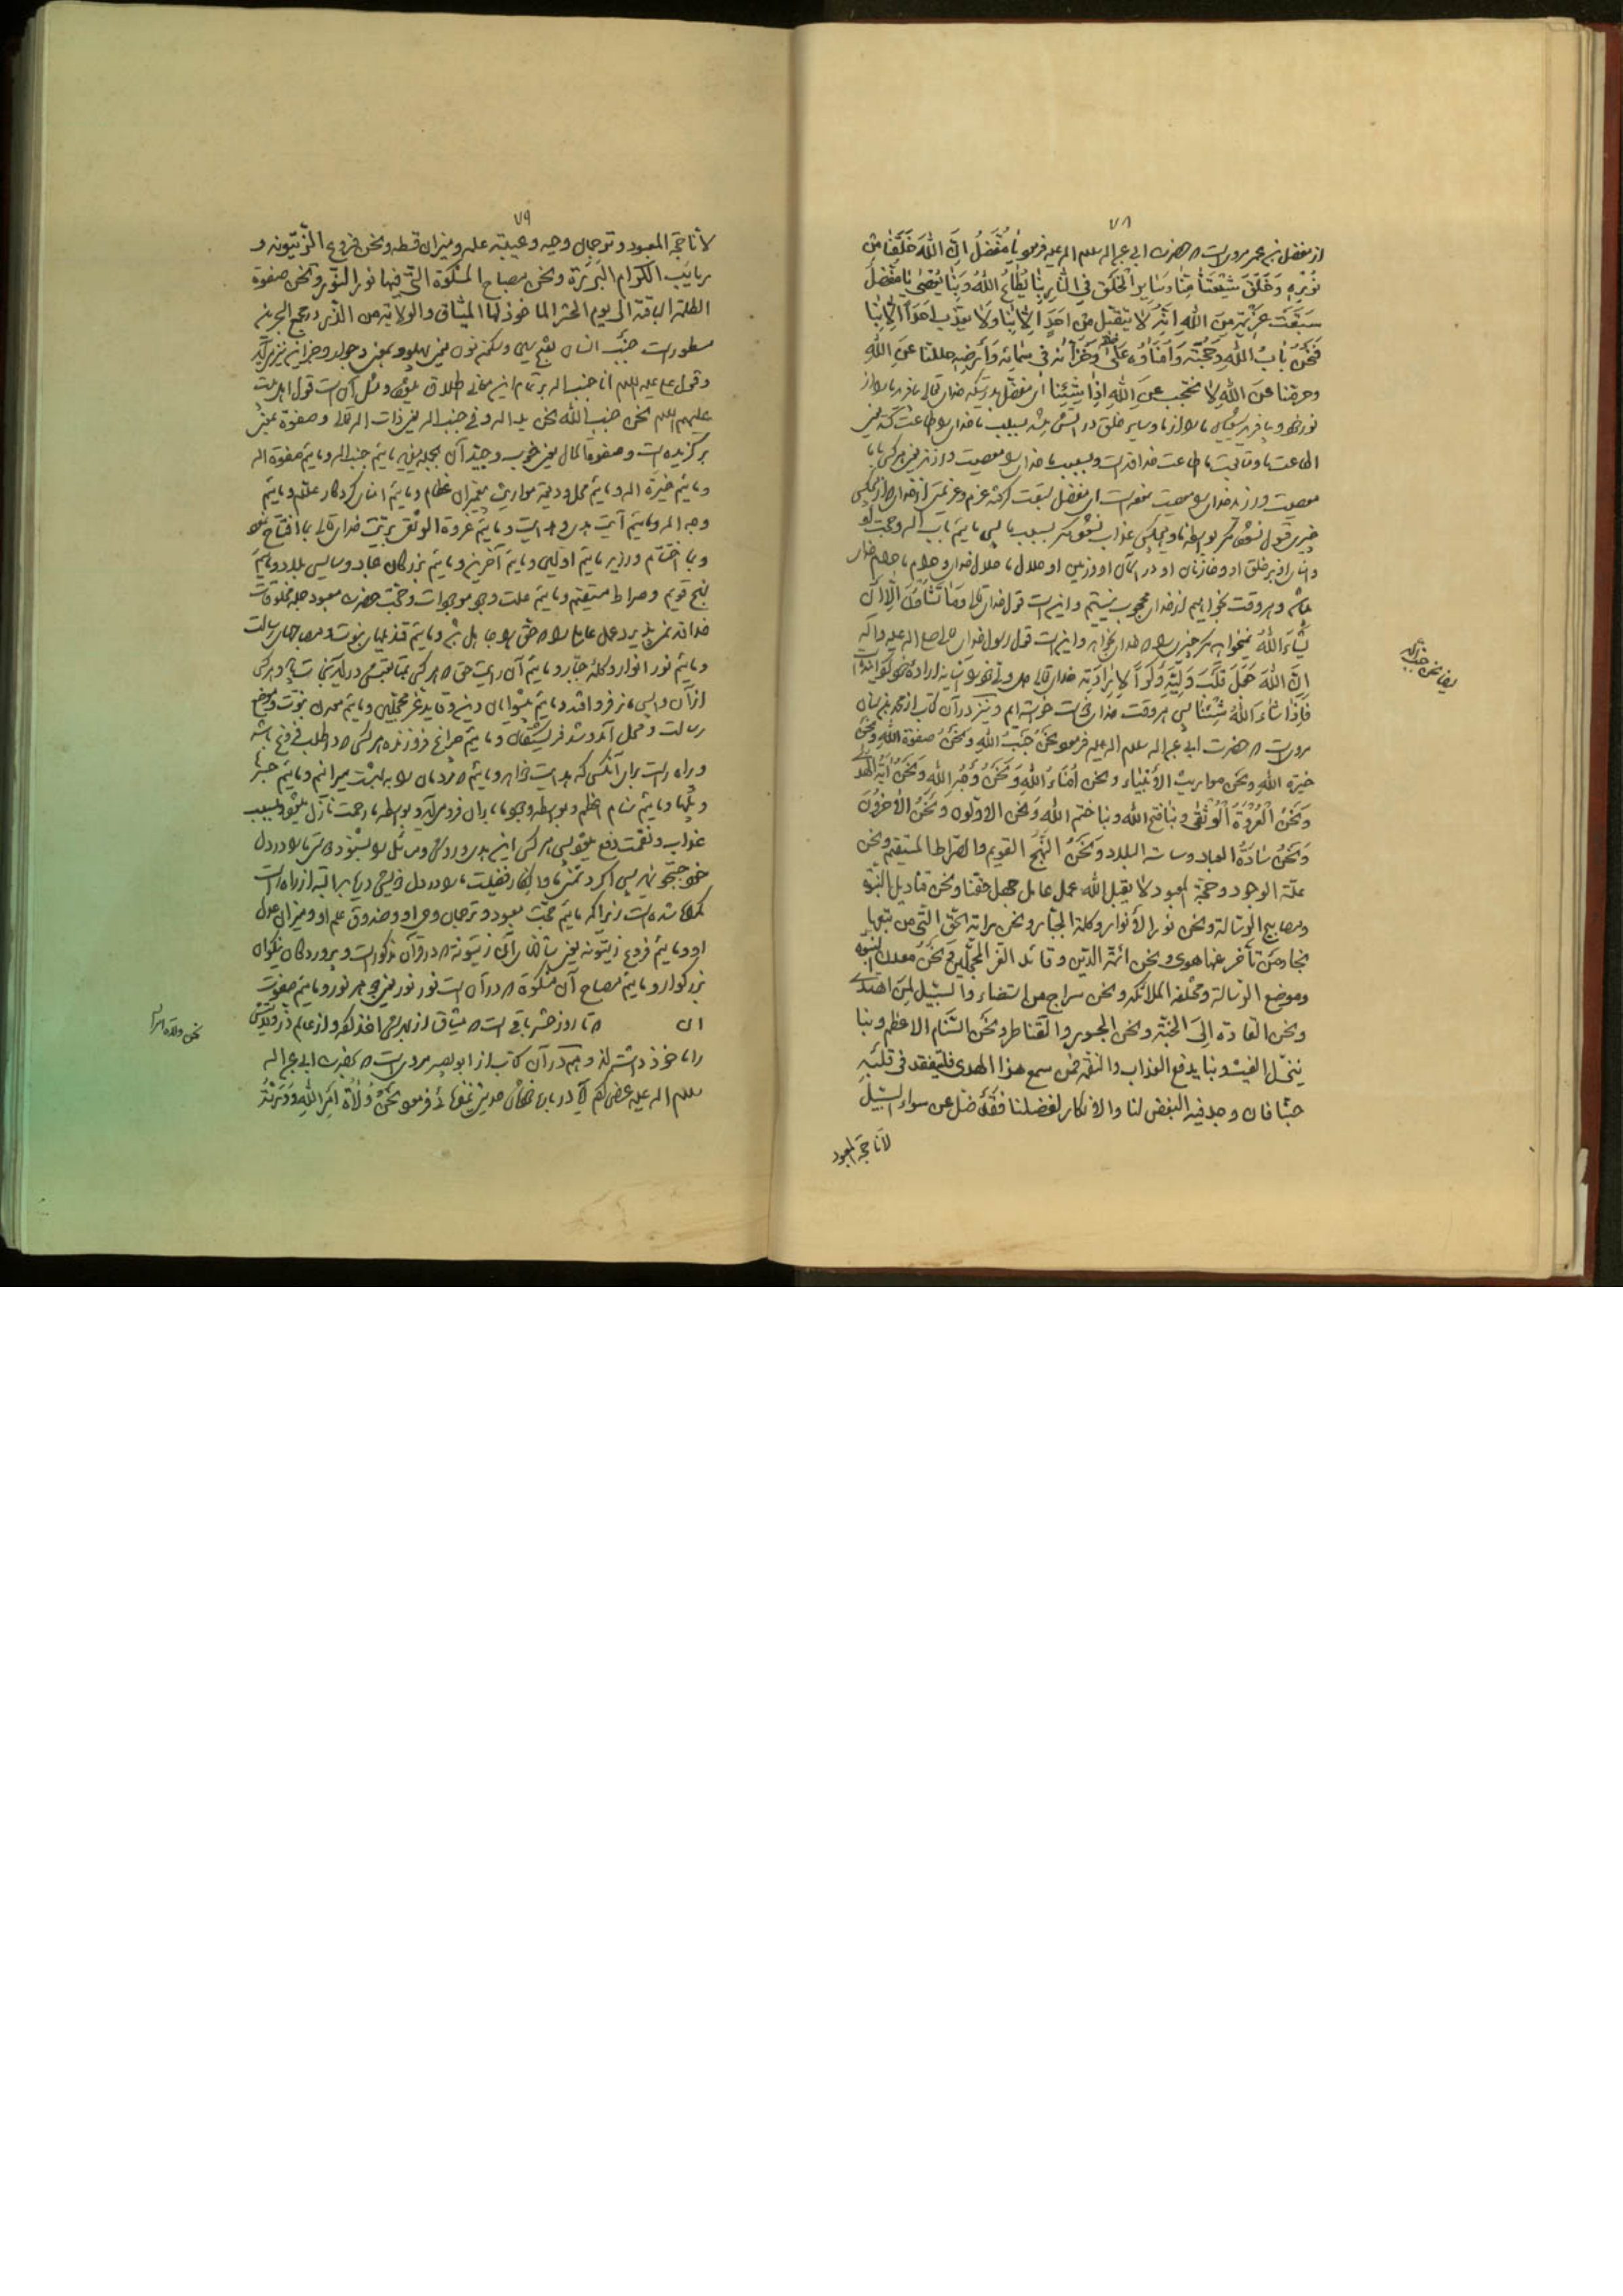 ٧٨
از مفضل بن عمر مرویست که حضرت ابی عبد الله سلام الله علیه فرمود یٰا مُفَضَّلُ اِنَّ اللّٰهَ خَلَقَنٰا مِن
نُورِهِ وَخَلَقَ شیعَتَنٰا مِنّٰا وَسٰایِرُ الْخَلْقِ فِی النّٰارِ بِنٰا یُطٰاعُ اللّٰهُ وَبِنٰا یُعْصٰی یٰا مُفَضَّلُ
سَبَقَتْ عَزیمَةٌ مِنَ اللّٰهِ اَنَّهُ لاٰ یَتَقَبَّلُ مِن اَحَدٍ اِلّٰا بِنٰا وَلاٰ یُعَذِّبُ اَحَداً اِلّٰا بِنٰا
فَنَحْنُ بٰابُ اللّٰهِ وَحُجَّتُهُ وَاُمَنٰاؤُهُ عَلیٰ خلقه وَخُزّٰانُهُ فی سَمٰائِهِ وَاَرْضِهِ حللنا عَنِ اللّٰهِ
وحرمنا عَنِ اللّٰهِ لاٰ نحتجب عَنِ اللّٰهِ اِذٰا شِئْنٰا ای مفضل بدرستیکه خدای تعالی بیافرید ما را از
نور خود و بیافرید شیعیان ما را از ما و سایر خلق در آتش باشند بسبب ما خدای را طاعت کنند یعنی
اطاعت ما و متابعت ما طاعت خداوند است و بسبب ما خدای را معصیت ورزند یعنی هر کس با ما
معصیت ورزد خدای را معصیت نموده است ای مفضل سبقت گرفته عزم و عزیمتی از خدای که از هیچکس
چیزی قبول نشود مگر بواسطه ما و هیچکس عذاب نشود مگر بسبب ما پس مائیم باب الله و حجت او
و امنای او بر خلق او و خازنان او در آسمان او و زمین او حلال ما حلال خدای و حرام ما حرام خدای
باشد و هر وقت بخواهیم از خدای محجوب نیستیم و اینست قول خدای تعالی وَمٰا تَشٰاؤُنَ اِلّٰا اَنْ
یَشٰاءَ اللّٰهُ نمیخواهید هیچ چیزی را مگر خدای بخواهد و اینست قول رسول خدای صلی الله علیه وآله
اِنَّ اللّٰهَ جَعَلَ قَلْبَ وَلِیِّهِ وَکْراً لِاِرٰادَتِهِ خدای تعالی دل ولی خود را آشیانه اراده خود گردانیده
فَاِذٰا شٰاءَ اللّٰهُ شِئْنٰا پس هر وقت خدای خواست خواسته ایم و نیز در آن کتاب از محمد بن سنان
مرویست که حضرت ابی عبد الله سلام الله علیه فرمود نَحْنُ جَنْبُ اللّٰهِ وَنَحْنُ صفوة اللّٰهِ ونَحْنُ
خیرة اللّٰهِ ونَحن مواریث الأنبیاء ونحن اُمَنٰاءُ اللّٰهِ وَنَحْنُ وَجْهُ اللّٰهِ وَنَحْنُ اٰیَةُ الهُدیٰ
وَنَحْنُ الْعُرْوَةُ الْوُثْقیٰ وبنا فتح اللّٰه وبنا ختم اللّٰه وَنحن الاوّلون وَنَحْنُ الآخِرُونَ
وَنَحْنُ سٰادَةُ العباد وساسة البلاد وَنَحْنُ النَّهْجُ القویم والصّراط المستقیم ونحن
علّة الوجود وحجّة المعبود لا یقبل اللّٰه عمل عامل جهل حقّنا ونحن قنادیل النبوّة
ومصابیح الرّسالة ونحن نور الأنوار وکلمة الجبّار ونحن رایة الحقّ الّتی من تبعها
نجا ومن تأخّر عنها هوی ونحن ائمّة الدّین وقائد الغرّ المحجّلین وَنَحْنُ معدن النبوّة
وموضع الرّسالة ومختلف الملائکة ونحن سراج لمن استضاء والسّبیل لِمَنِ اهْتَدیٰ
ونحن القادة اِلَی الجنّة ونحن الجسور والقناطر ونَحْنُ السّنام الاعظم وبنا
ینزل الغیث وبنا یدفع العذاب والنقمة فمن سمع هذا الهدی فلیتفقّد فی قلبه
حبّنا فان وجد فیه البغض لنا والانکار لفضلنا فقد ضلّ عن سواء السّبیل
لأنّا حجّة المعبود
بیان نحن جنب الله
٧٩
لأنّا حجّة المعبود وترجمان وحیه وعیبة علمه ومیزان قسطه ونحن فروع الزّیتونة و
ربایب الکرام البررة ونحن مصباح المشکوة الّتی فیها نور النّور ونحن صفوة
الکلمة الباقیة الی یوم الحشر المأخوذ لها المیثاق والولایة من الذّر در مجمع البحرین
مسطور است جنب انسان بفتح جیم وسکون نون یعنی پهلو وبمعنی وجوار وجز این نیز آمده
وقول علی علیه السلام انا جنب الله بر تمام این معانی اطلاق میشود ومثل آن است قول اهل بیت
علیهم السلام نحن جنب الله نحن ید الله وفی جنب الله یعنی ذات الله تعالی وصفوة یعنی
برگزیده است وصفوة المال یعنی خوب وجید آن بالجمله میفرماید مائیم جنب الله ومائیم صفوة الله
ومائیم خیرة الله ومائیم محل ودیعه مواریث پیغمبران عظام ومائیم امنای کردگار علام ومائیم
وجه الله ومائیم آیت هدی وهدایت ومائیم عروة الوثقی بولایت خدای تعالی بما افتتاح نمود
وبما اختتام ورزید مائیم اولین ومائیم آخرین ومائیم بزرگان عباد وسایس بلاد ومائیم
نهج قویم وصراط مستقیم ومائیم علت وجود موجودات وحجت حضرت معبود جمله مخلوقات
خداوند نمی پذیرد عمل عاملی را که حق ما را جاهل باشد ومائیم قندیلهای نبوت ومصباحهای رسالت
ومائیم نور انوار وکلمه جبار ومائیم آن رایت حق که هر کس بمتابعتش در آید رستگار شود وهر کس
از آن واپس ماند فرو افتد ومائیم پیشوایان دین وقاید غر محجلین ومائیم معدن نبوت وموضع
رسالت ومحل آمد وشد فرشتگان ومائیم چراغ فروزنده هر کس که در طلب فروغ باشد
وراه راست برای آنکس که هدایت خواهد ومائیم که مردمان را به بهشت میرانیم ومائیم جسرها
وپلها ومائیم سنام اعظم وبواسطه وجود ما باران فرود آید وبواسطه ما رحمت نازل میشود وبسبب ما
عذاب ونقمت دفع میشود پس هر کس این هدی وروش ومسائل را بشنود دوستی ما را در دل
خود جستجو نماید پس اگر دشمنی ما وانکار فضیلت ما را در دل خویش دریابد البته از راه راست
گمراه شده است زیرا که مائیم حجت معبود وترجمان وحی او وصندوق علم او ومیزان عدل
او ومائیم فروع زیتونه یعنی شاخه‌های آن زیتونه که در قرآن مذکور است وپروردگان نیکوان
بزرگوار ومائیم مصباح آن مشکوة که در آن است نور نور یعنی جوهر نور ومائیم صفوت
ان که تا روز حشر باقی است که میثاق از بهرش اخذ کرده واز عالم ذر ولایتش
را مأخوذ داشته‌اند وهم در آن کتاب از ابو بصیر مرویست که بحضرت ابی عبد الله
سلام الله علیه عرض کردم فرمود نَحْنُ وُلٰاةُ اَمْرِ اللّٰهِ وَوَرَثَةُ
نحن ولاة امر الله